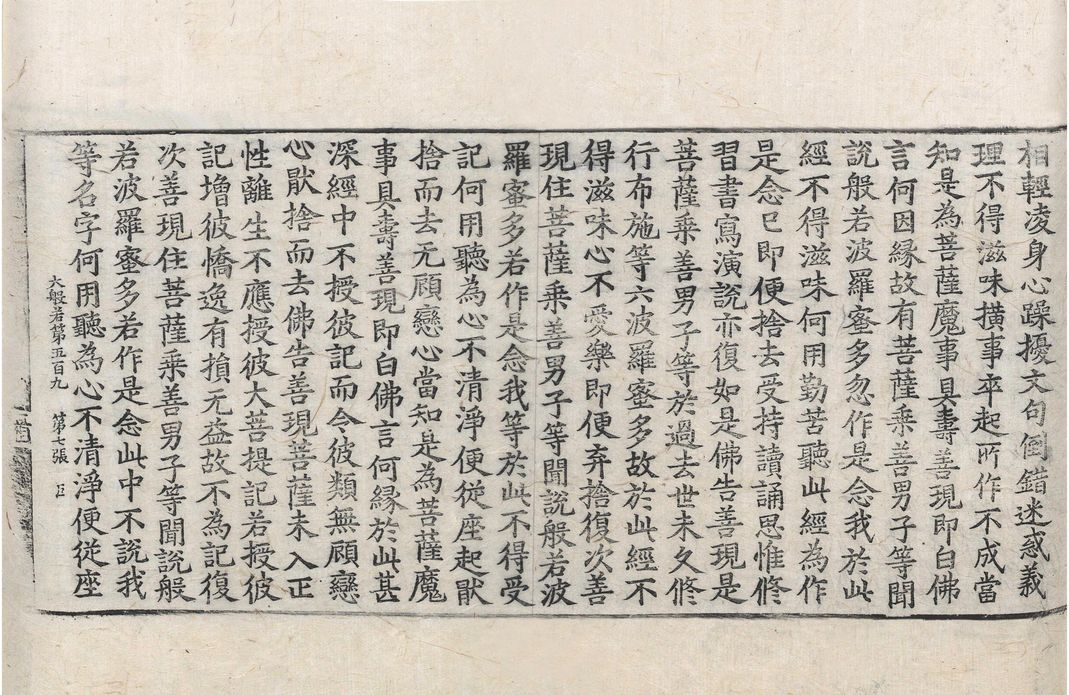 相輕凌身心躁擾文句倒錯迷惑義
理不得滋味橫事卒起所作不成當
知是為菩薩魔事具壽善現即白佛
言何因緣故有菩薩乘善男子等聞
說般若波羅蜜多忽作是念我於此
經不得滋味何用勤苦聽此經為作
是念已即便捨去受持讀誦思惟修
習書寫演說亦復如是佛告善現是
菩薩乘善男子等於過去世未久修
行布施等六波羅蜜多故於此經不
得滋味心不愛樂即便弃捨復次善
現住菩薩乘善男子等聞說般若波
羅蜜多若作是念我等於此不得受
記何用聽為心不清淨便從座起猒
捨而去无顧戀心當知是為菩薩魔
事具壽善現即白佛言何緣於此甚
深經中不授彼記而令彼類無顧戀
心猒捨而去佛告善現菩薩未入正
性離生不應授彼大菩提記若授彼
記增彼憍逸有損无益故不為記復
次善現住菩薩乘善男子等聞說般
若波羅蜜多若作是念此中不說我
等名字何用聽為心不清淨便從座
大般若第五百九 第七張 正